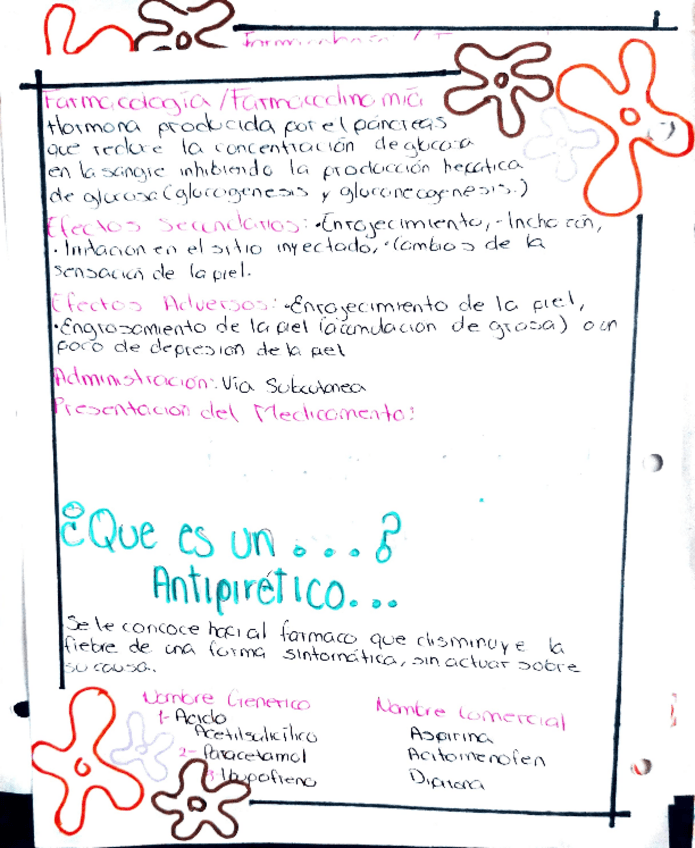 Farmacología/Farmacodinamia
Hormona producida por el páncreas
que reduce la concentración de glucosa
en la sangre inhibiendo la producción hepática
de glucosa (glucogenesis y gluconeogenesis.)
Efectos Secundarios: •Enrojecimiento, •Inchazón,
•Irritación en el sitio inyectado, •Cambios de la
sensación de la piel.
Efectos Adversos: •Enrojecimiento de la piel,
•Engrosamiento de la piel (acumulacion de grasa) o un
poco de depresion de la piel
Administración: Vía Subcutanea
Presentación del Medicamento:
¿Que es un . . . . ?
Antipirético...
Se le concoce haci al farmaco que disminuye la
fiebre de una forma sintomática, sin actuar sobre
su causa.
Nombre Generico
Nombre Comercial
1- Acido
Acetilsalicílico
Aspirina
2- Paracetamol
Acitomenofen
3- Ibupofieno
Dipirona